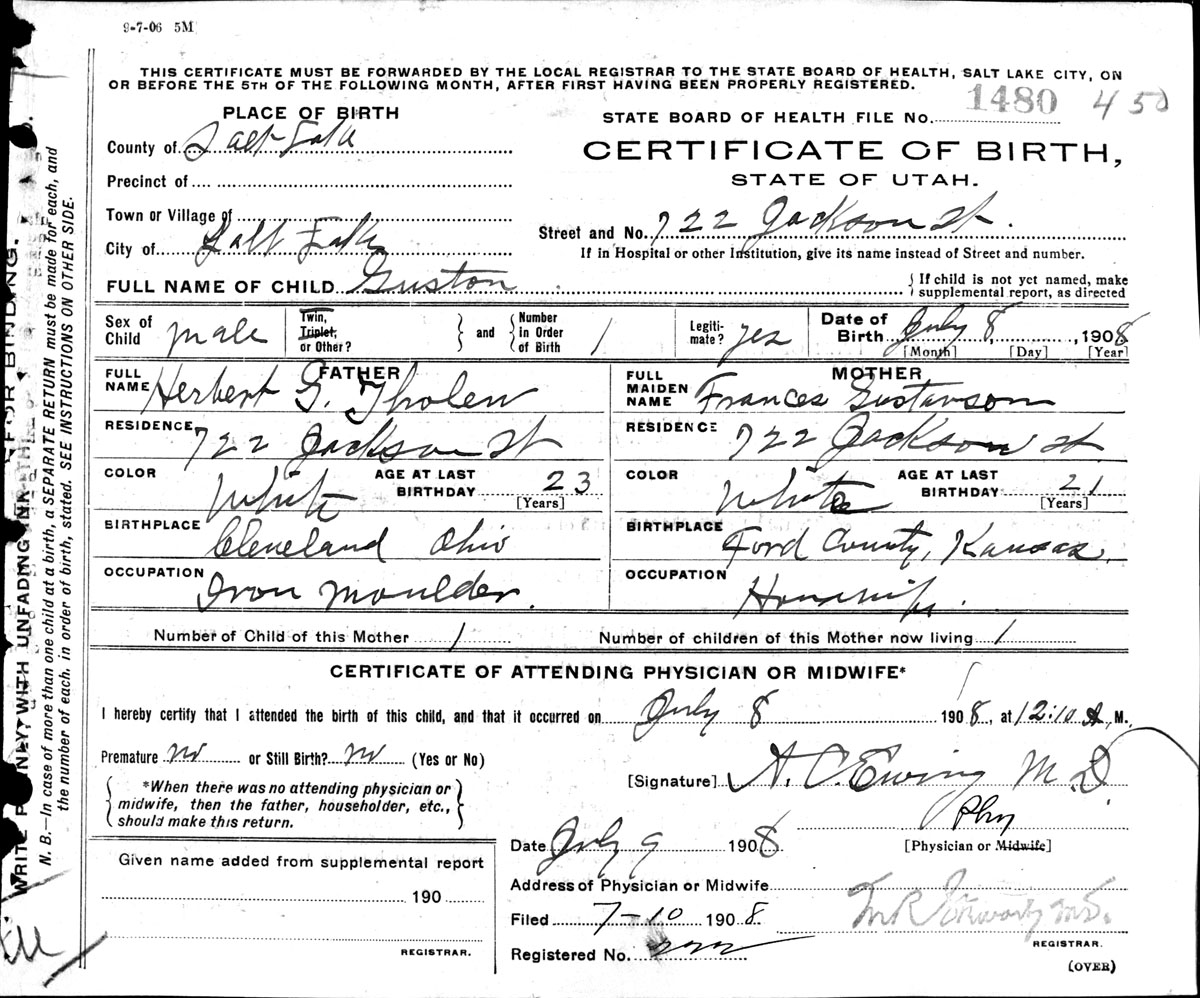 9-7-06 5M
THIS CERTIFICATE MUST BE FORWARDED BY THE LOCAL REGISTRAR TO THE STATE BOARD OF HEALTH, SALT LAKE CITY, ON
OR BEFORE THE 5TH OF THE FOLLOWING MONTH, AFTER FIRST HAVING BEEN PROPERLY REGISTERED.
PLACE OF BIRTH
STATE BOARD OF HEALTH FILE No. 1480 450
County of Salt Lake
CERTIFICATE OF BIRTH,
STATE OF UTAH.
Precinct of
Town or Village of
Street and No. 722 Jackson St.
City of Salt Lake
If in Hospital or other Institution, give its name instead of Street and number.
FULL NAME OF CHILD Guston
{ If child is not yet named, make
supplemental report, as directed
Sex of Child male Twin, Triplet, or Other? } and { Number in Order of Birth 1 Legitimate? yes Date of Birth July 8, 1908
[Month] [Day] [Year]
FATHER
FULL NAME Herbert G. Tholen
RESIDENCE 722 Jackson St
COLOR White AGE AT LAST BIRTHDAY 23
[Years]
BIRTHPLACE Cleveland Ohio
OCCUPATION Iron Moulder.
MOTHER
FULL MAIDEN NAME Frances Gustavson
RESIDENCE 722 Jackson St
COLOR White AGE AT LAST BIRTHDAY 21
[Years]
BIRTHPLACE Ford County, Kansas.
OCCUPATION Housewife.
Number of Child of this Mother 1 Number of children of this Mother now living 1
CERTIFICATE OF ATTENDING PHYSICIAN OR MIDWIFE*
I hereby certify that I attended the birth of this child, and that it occurred on July 8 1908, at 12:10 A. M.,
Premature no or Still Birth? no (Yes or No)
[Signature] A. C. Ewing M.D.
{ *When there was no attending physician or
midwife, then the father, householder, etc.,
should make this return. }
Phy
[Physician or Midwife]
Date July 9 1908
Given name added from supplemental report
190
REGISTRAR.
Address of Physician or Midwife
Filed 7-10 1908
REGISTRAR.
Registered No.
(OVER)
FOR BINDING.
WRITE PLAINLY WITH UNFADING INK
N. B.—In case of more than one child at a birth, a SEPARATE RETURN must be made for each, and
the number of each, in order of birth, stated. SEE INSTRUCTIONS ON OTHER SIDE.